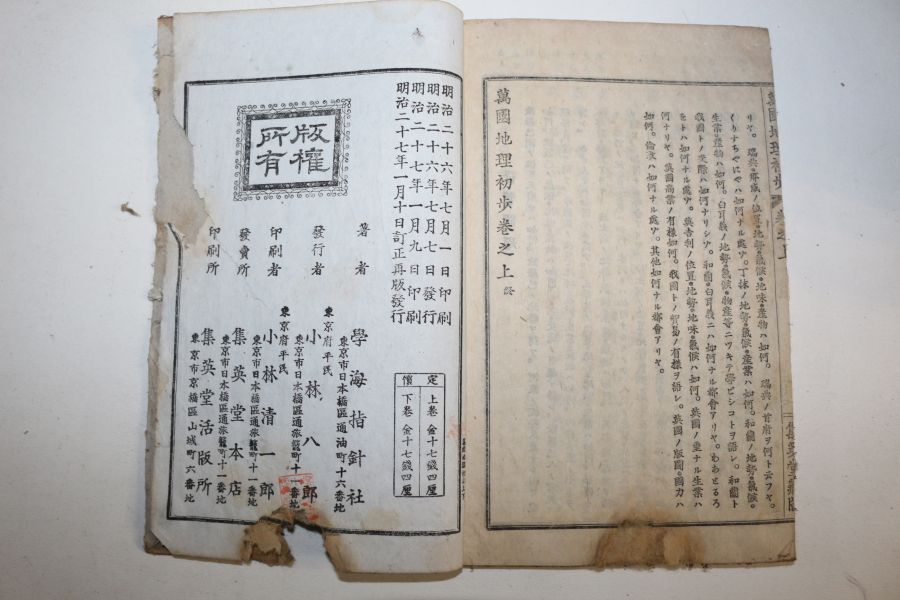 リヤ。瑞典ノ都威ノ位置・地勢・氣候・地味・產物ハ如何。瑞典ノ首府ヲ何ト云フヤ。
くりすちやにやハ如何ナル處ゾ。丁抹ノ地勢・氣候・產業ハ如何。和蘭ノ地勢・氣候・
生業・產物ハ如何。白耳義ノ地勢・氣候・物產等ニツキテ學ビシコトヲ語レ。和蘭ト
我國トノ交際ハ如何ナリシゾ。和蘭・白耳義ニハ如何ナル都會アリヤ。
をトハ如何ナル處ゾ。英吉利ノ位置・地勢・地味・氣候ハ如何。英國ノ重ナル生業ハ
何ナリヤ。英國商業ノ有樣如何。我國トノ貿易ノ有樣ヲ語レ。英國ノ版圖・國力ハ
如何。倫敦ハ如何ナル處ゾ。其他如何ナル都會アリヤ。
萬國地理初步卷之上 終
明治二十六年七月一日印刷
明治二十六年七月七日發行
明治二十七年一月九日印刷
明治二十七年一月十日訂正再版發行
版權
所有
著者 學海指針社
東京市日本橋區通油町十六番地
東京府平民
發行者 小林八郎
東京市日本橋區通旅籠町十一番地
東京府平民
印刷者 小林清一郎
東京市日本橋區通旅籠町十一番地
發賣所 集英堂本店
東京市日本橋區通旅籠町十一番地
印刷所 集英堂活版所
東京市京橋區山城町六番地
定價
上卷 金十七錢四厘
下卷 金十七錢四厘